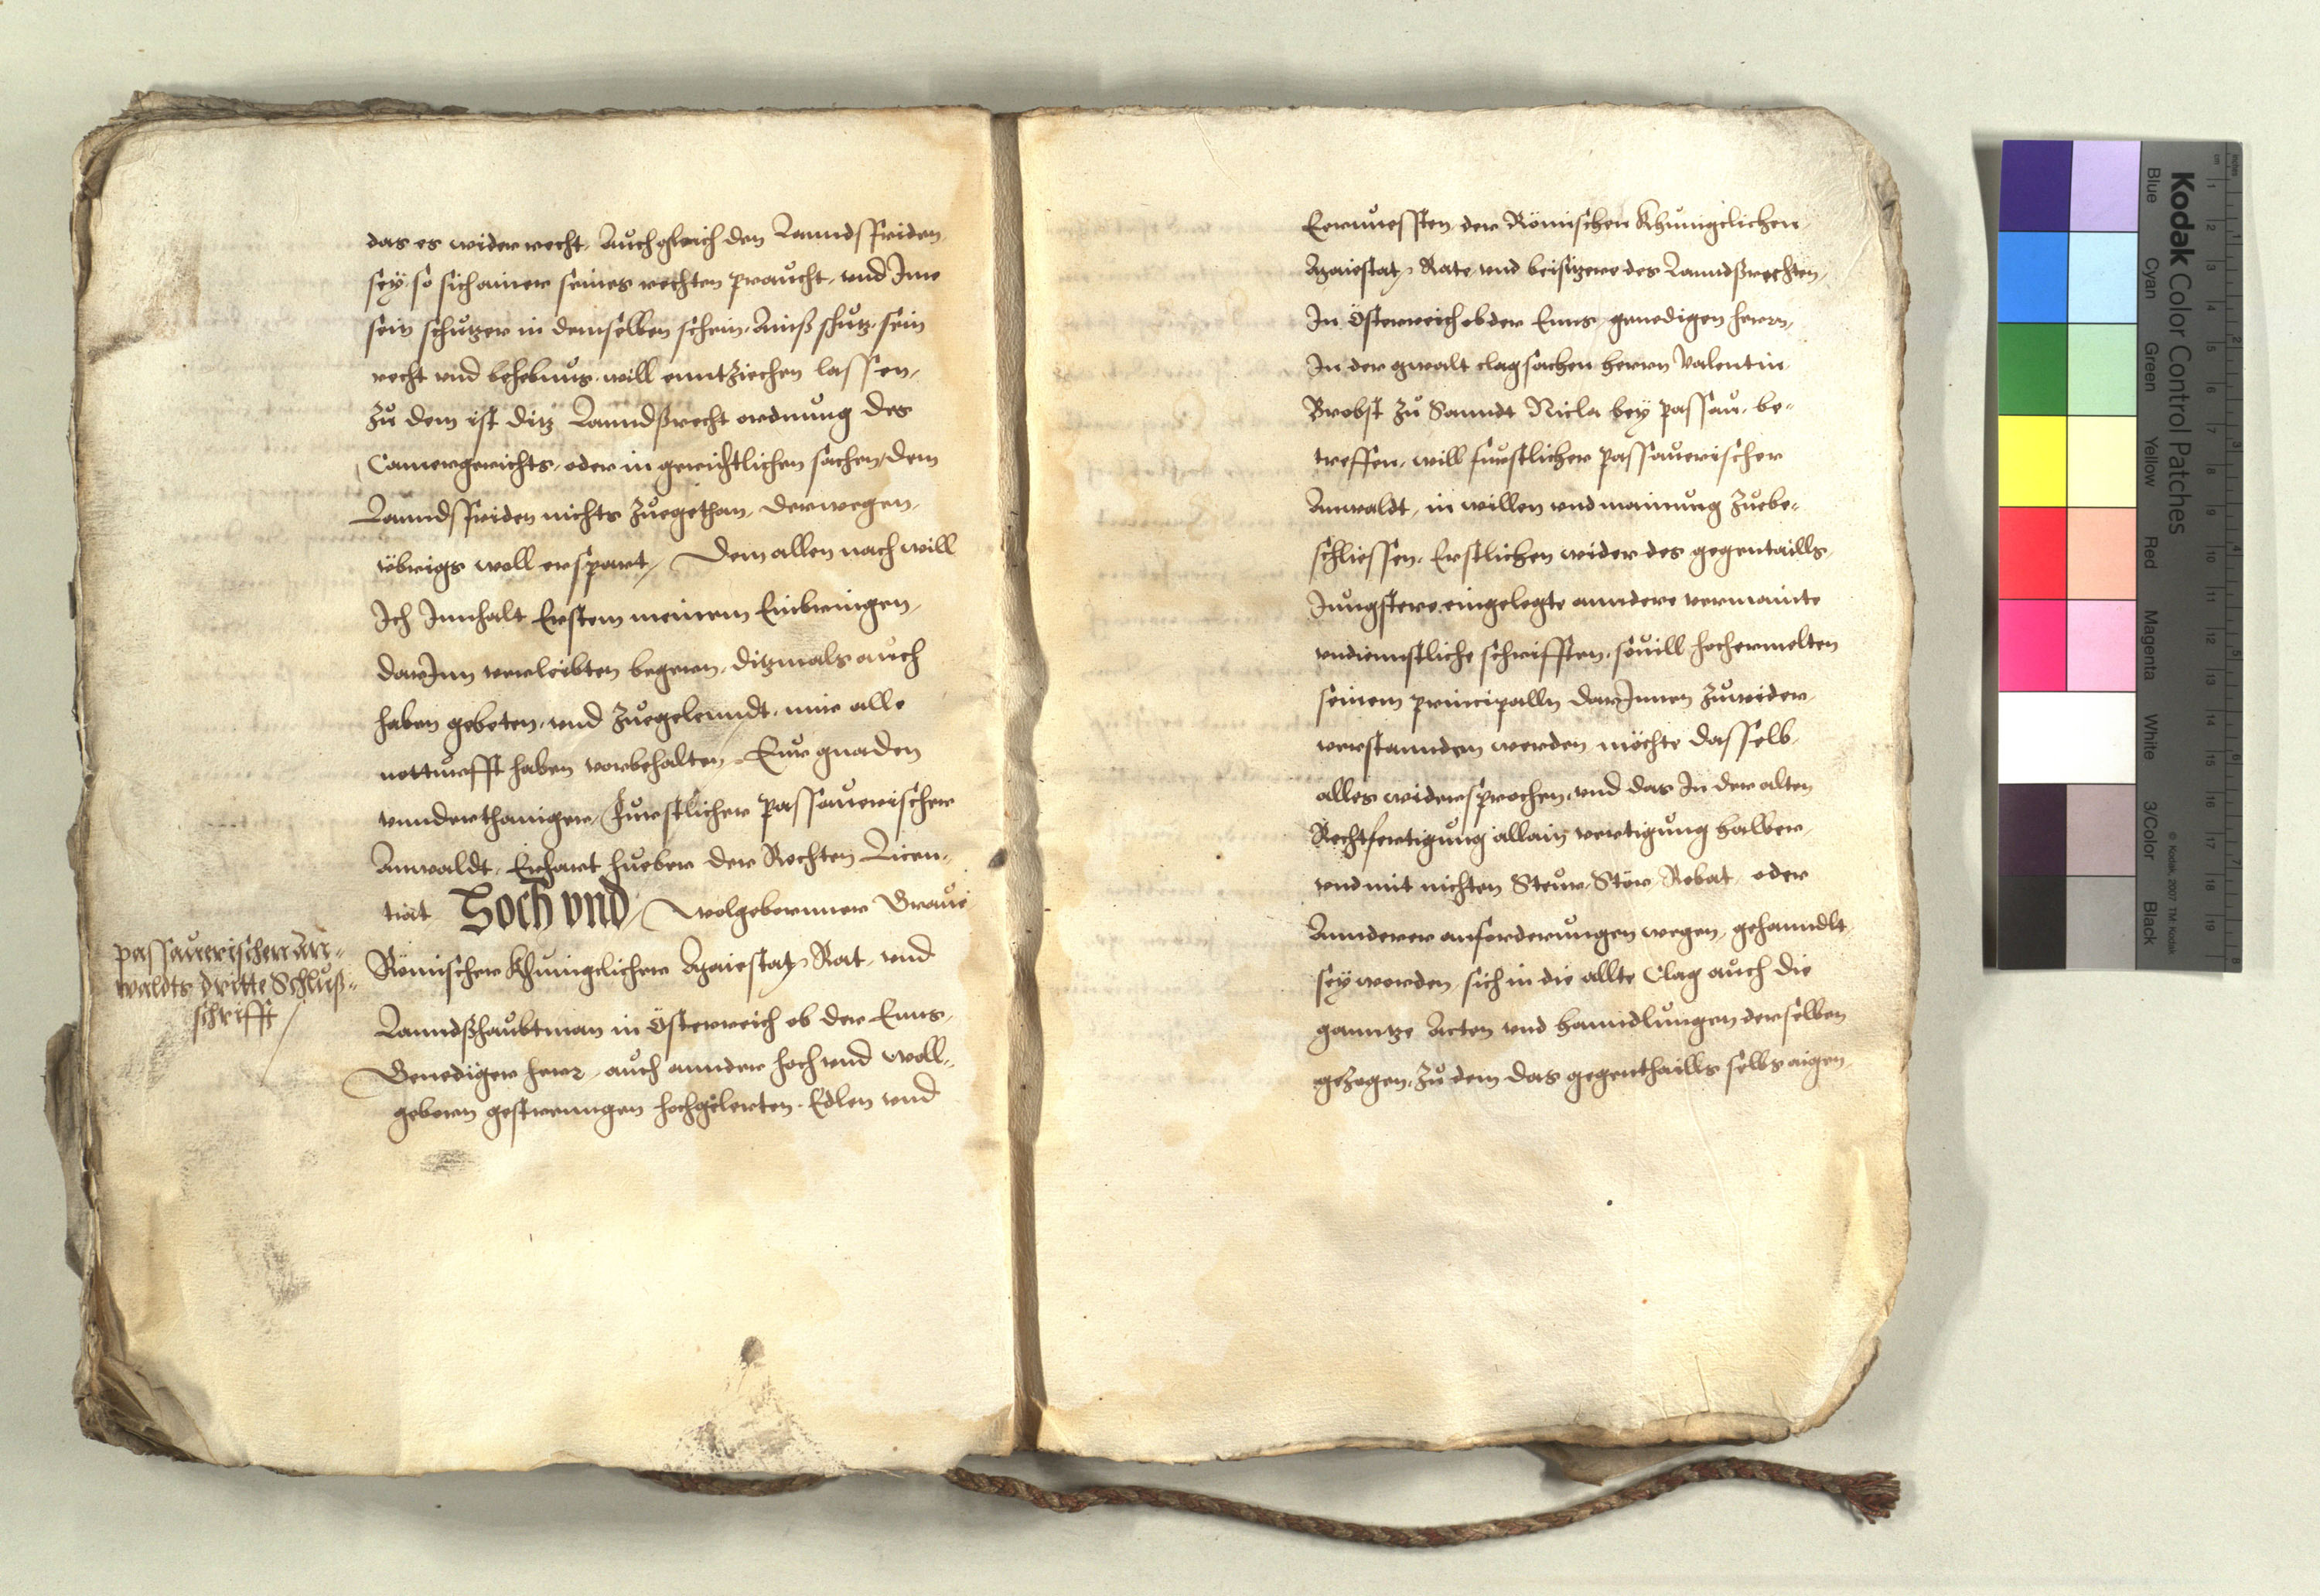 das es wider recht, Auch gleich den Lanndsfriden
sey, so sich ainer seines rechten praucht, und Ime
sein schützer in demselben schein, Ainß schutz, sein
recht und behebnus, will enntziechen lassen,
Zu dem ist ditz Lanndßrecht ordnung des
Camergerichts, oder in gerichtlichen sachen, dem
Lanndsfriden nichts zuegethan, derwegen,
übrigs woll erspart, Dem allen nach will
Ich Innhalt Erstem meinem Einbringen,
darInn verleibten begern, ditzmals auch
haben gebeten, und zuegelenndt, mir alle
notturfft haben vorbehalten, Eur gnaden
unnderthaniger, Furstlicher passauerischer
Anwaldt, Erhart Hueber der Rechten Licen-
tiat, Hoch und, Wolgebornner Graue
passauerischen An-
waldts dritte Schluß-
schrifft
Römischer Khuniglicher Maiestat, Rat, und
Lanndßhaubtman in Österreich ob der Enns,
Genediger herr, auch annder hoch und woll-
geborn gestrenngen hochgelerten, Edlen und
Eernuessten, der Römischen Khuniglichen,
Maiestat, Rate, und beisitzere des Lanndßrechten,
In Österreich ob der Enns, genedigen herrn,
In der gwalt clagsachen herrn Valentin
Brobst zu Sanndt Nicla bey passau, be-
treffen, will furstlicher passauerischer
Anwaldt, in willen und mainung zuebe-
schliessen, Erstlichen wider des gegentaills,
Jungstere, eingelegte anndere vermainte
undiennstliche schrifften, souill hochermelten
seinem principalln darInnen zuwider,
verstannden werden möchte, dasselb,
alles widersprochen, und das In der alten
Rechtfertigung allain vertigung halber,
und mit nichten Steur, Stör, Robat, oder
Annderer anforderungen wegen, gehanndlt,
sey worden, sich in die allte Clag auch die
ganntze Acten und hanndlungen derselben
gezogen, zu dem das gegenthaills selbs aigen
Kodak Color Control Patches
Blue Cyan Green Yellow Red Magenta White 3/Color Black
© Kodak, 2007 TM: Kodak